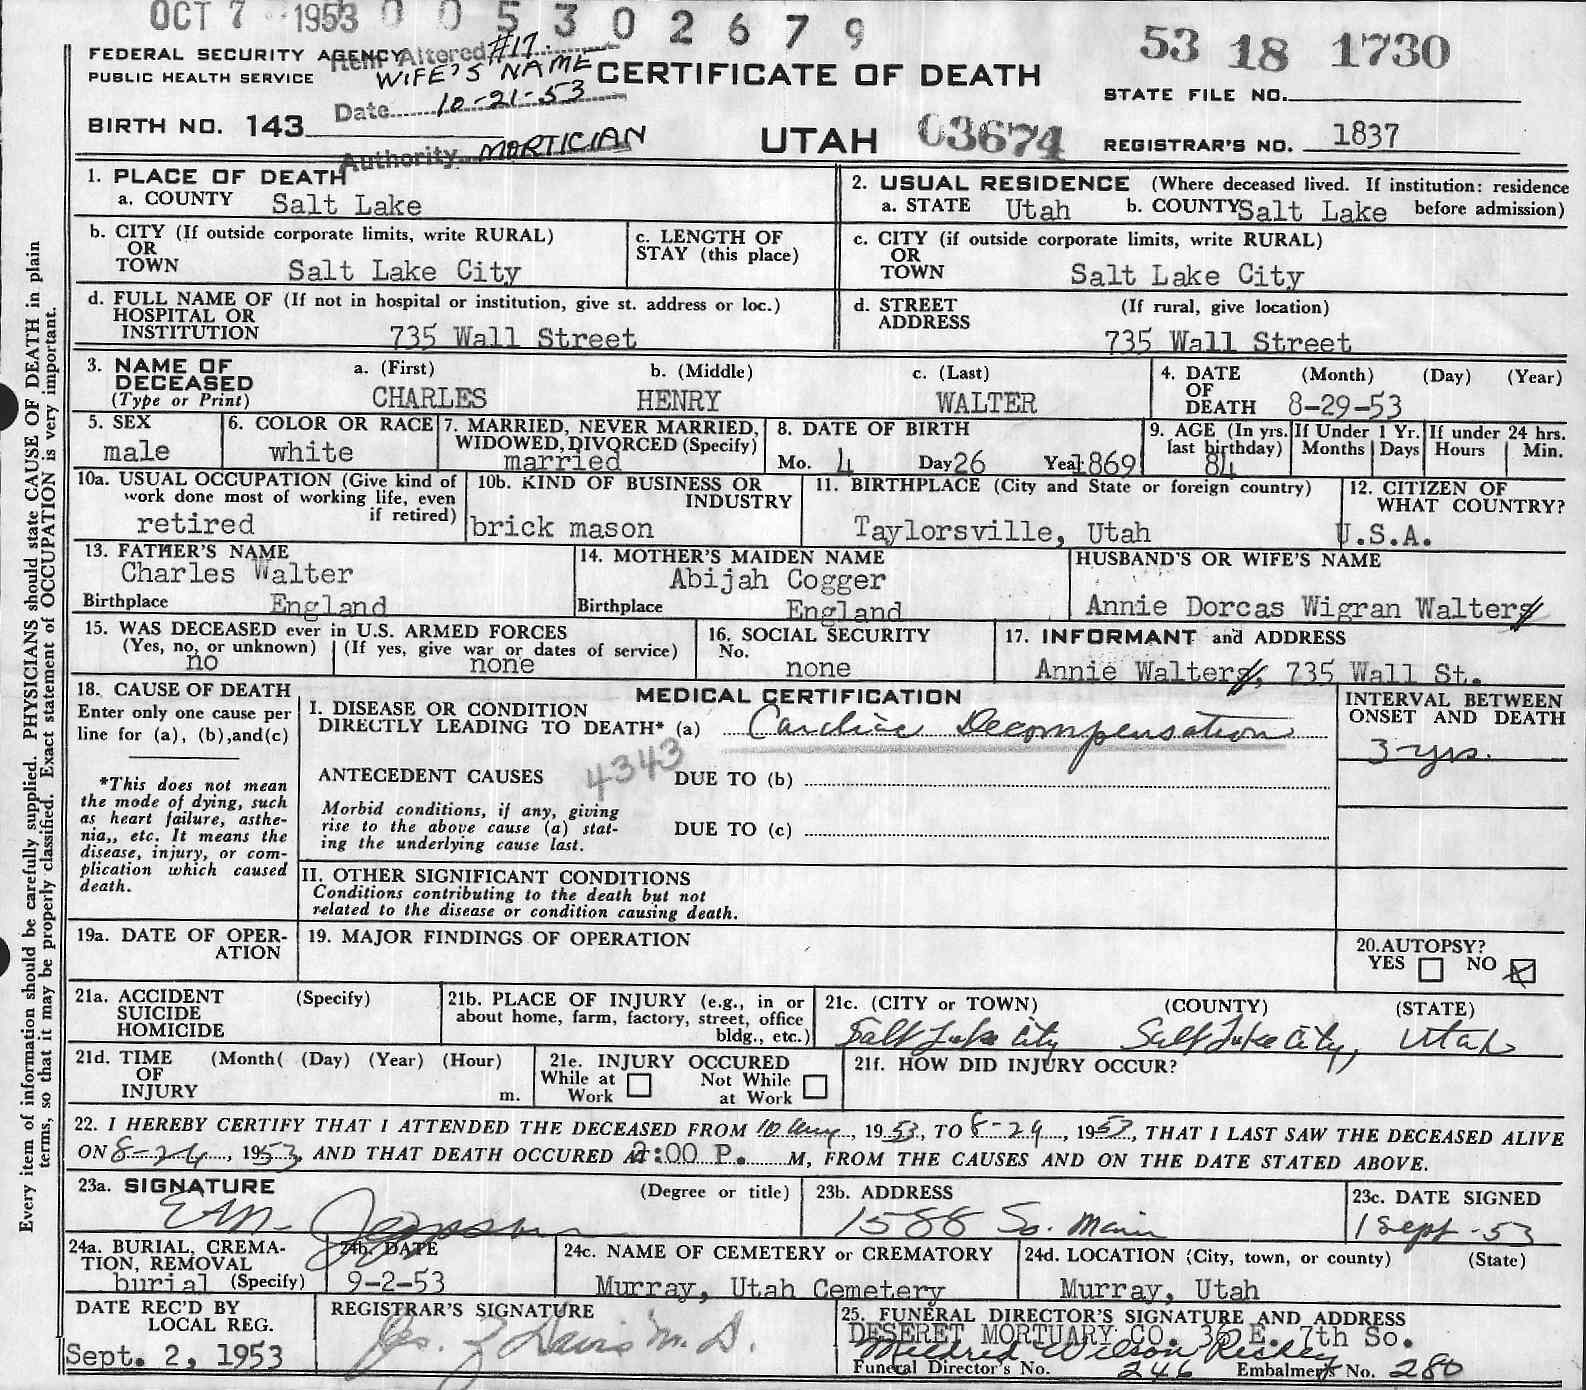 OCT 7 1953 0 0 5 3 0 2 6 7 9
53 18 1730
FEDERAL SECURITY AGENCY
PUBLIC HEALTH SERVICE
Item Altered #17
WIFE'S NAME
Date 10-21-53
Authority MORTICIAN
CERTIFICATE OF DEATH
STATE FILE NO.
BIRTH NO. 143
UTAH 03674
REGISTRAR'S NO. 1837
1. PLACE OF DEATH
a. COUNTY Salt Lake
2. USUAL RESIDENCE (Where deceased lived. If institution: residence
a. STATE Utah b. COUNTY Salt Lake before admission)
b. CITY (If outside corporate limits, write RURAL)
OR
TOWN Salt Lake City
c. LENGTH OF
STAY (this place)
c. CITY (if outside corporate limits, write RURAL)
OR
TOWN Salt Lake City
d. FULL NAME OF (If not in hospital or institution, give st. address or loc.)
HOSPITAL OR
INSTITUTION 735 Wall Street
d. STREET (If rural, give location)
ADDRESS
735 Wall Street
3. NAME OF a. (First) b. (Middle) c. (Last)
DECEASED
(Type or Print) CHARLES HENRY WALTER
4. DATE (Month) (Day) (Year)
OF
DEATH 8-29-53
5. SEX
male
6. COLOR OR RACE
white
7. MARRIED, NEVER MARRIED,
WIDOWED, DIVORCED (Specify)
married
8. DATE OF BIRTH
Mo. 4 Day 26 Year 1869
9. AGE (In yrs. If Under 1 Yr. If under 24 hrs.
last birthday) Months Days Hours Min.
84
10a. USUAL OCCUPATION (Give kind of
work done most of working life, even
if retired)
retired
10b. KIND OF BUSINESS OR
INDUSTRY
brick mason
11. BIRTHPLACE (City and State or foreign country)
Taylorsville, Utah
12. CITIZEN OF
WHAT COUNTRY?
U.S.A.
13. FATHER'S NAME
Charles Walter
Birthplace England
14. MOTHER'S MAIDEN NAME
Abijah Cogger
Birthplace England
HUSBAND'S OR WIFE'S NAME
Annie Dorcas Wigran Walters
15. WAS DECEASED ever in U.S. ARMED FORCES
(Yes, no, or unknown) (If yes, give war or dates of service)
no none
16. SOCIAL SECURITY
No.
none
17. INFORMANT and ADDRESS
Annie Walters, 735 Wall St.
18. CAUSE OF DEATH
Enter only one cause per
line for (a), (b), and(c)
*This does not mean
the mode of dying, such
as heart failure, asthe-
nia,, etc. It means the
disease, injury, or com-
plication which caused
death.
MEDICAL CERTIFICATION
I. DISEASE OR CONDITION
DIRECTLY LEADING TO DEATH* (a) Cardiac Decompensation
4343
ANTECEDENT CAUSES DUE TO (b)
Morbid conditions, if any, giving
rise to the above cause (a) stat-
ing the underlying cause last.
DUE TO (c)
INTERVAL BETWEEN
ONSET AND DEATH
3 yrs.
II. OTHER SIGNIFICANT CONDITIONS
Conditions contributing to the death but not
related to the disease or condition causing death.
19a. DATE OF OPER-
ATION
19. MAJOR FINDINGS OF OPERATION
20. AUTOPSY?
YES NO
21a. ACCIDENT (Specify)
SUICIDE
HOMICIDE
21b. PLACE OF INJURY (e.g., in or
about home, farm, factory, street, office
bldg., etc.)
21c. (CITY or TOWN) (COUNTY) (STATE)
Salt Lake City Salt Lake City, Utah
21d. TIME (Month( (Day) (Year) (Hour)
OF
INJURY m.
21e. INJURY OCCURED
While at Not While
Work at Work
21f. HOW DID INJURY OCCUR?
22. I HEREBY CERTIFY THAT I ATTENDED THE DECEASED FROM 10 Aug, 1953, TO 8-29, 1953, THAT I LAST SAW THE DECEASED ALIVE
ON 8-24, 1953, AND THAT DEATH OCCURED AT 2:00 P. M, FROM THE CAUSES AND ON THE DATE STATED ABOVE.
23a. SIGNATURE (Degree or title)
23b. ADDRESS
1588 So. Main
23c. DATE SIGNED
1 Sept-53
24a. BURIAL, CREMA-
TION, REMOVAL
burial (Specify)
24b. DATE
9-2-53
24c. NAME OF CEMETERY or CREMATORY
Murray, Utah Cemetery
24d. LOCATION (City, town, or county) (State)
Murray, Utah
DATE REC'D BY
LOCAL REG.
Sept. 2, 1953
REGISTRAR'S SIGNATURE
Davis M.D.
25. FUNERAL DIRECTOR'S SIGNATURE AND ADDRESS
DESERET MORTUARY CO. 36 E. 7th So.
Mildred Wilson
Funeral Director's No. 246 Embalmer's No. 280
Every item of information should be carefully supplied. PHYSICIANS should state CAUSE OF DEATH in plain
terms, so that it may be properly classified. Exact statement of OCCUPATION is very important.